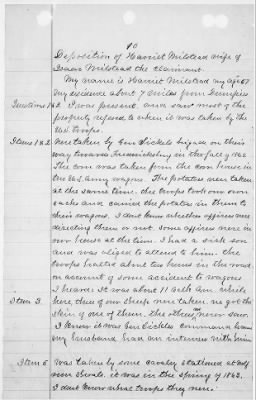 10
Deposition of Harriet Milstead wife of
Isaac Milstead the Claimant.
My name is Harriet Milstead my age 67
My residence about 7 miles from Dumfries
Questions 1&2 I was present and saw most of the
property refered to when it was taken by the
U.S. troops.
Items 1 & 2 were taken by Gen Sickels brigade on their
way towards Fredericksburg in the fall of 1862
The corn was taken from the corn house in
the U.S. army wagons. The potatoes were taken
at the same time. the troops took our own
sacks and carried the potatoes in them to
their wagons. I don't know whether officers were
directing them or not some officers were in
our house at the time. I had a sick son
and was obliged to attend to him. the
troops halted about two hours in the road
on account of some accident to wagons
I heard. It was about 11 o'clk a.m. while
Item 3. here, three of our sheep were taken. we got the
skin of one of them. the others we never saw.
I know it was Gen Sickles command because
my husband had an interview with him
Item 5 Was taken by some cavalry stationed at
near it was in the spring of 1863.
I don't know what troops they were.